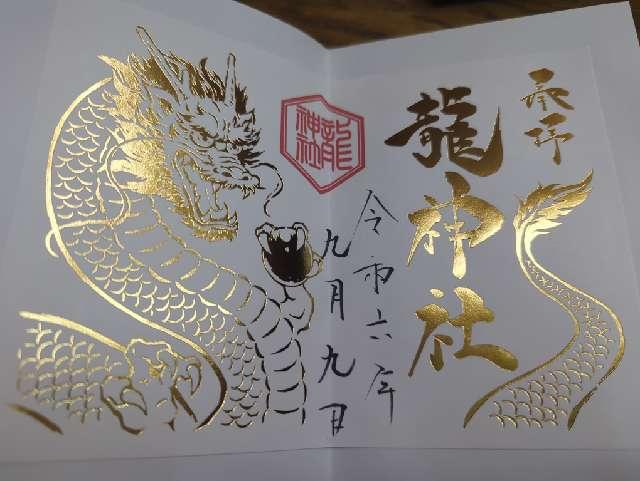 奉拝
龍神社
令和六年
九月九日
龍神社